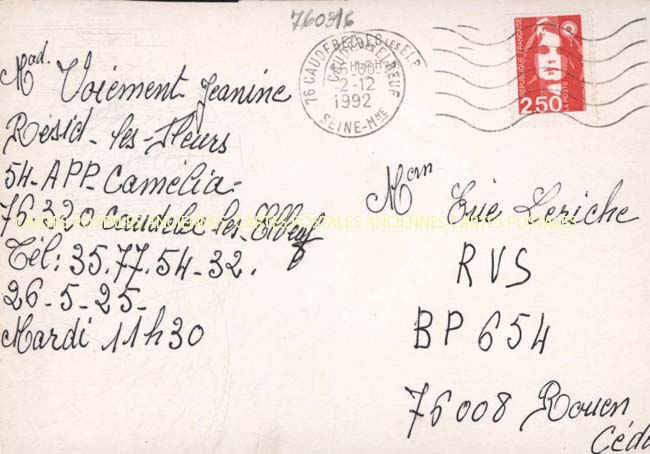 760316
76 CAUDEBEC-LES-ELBEUF
2-12
1992
SEINE-MME
REPUBLIQUE FRANÇAISE
2,50
LA POSTE
Mad. Voiement Jeanine
Résid-les-Fleurs
54-APP-Camélia-
76.320 Caudebec les-Elbeuf
Tél: 35.77.54-32.
26-5-25-
Mardi 11h30
Eric Leriche
RVS
BP 654
76008 Rouen
Céd
CARTES POSTALES ANCIENNES